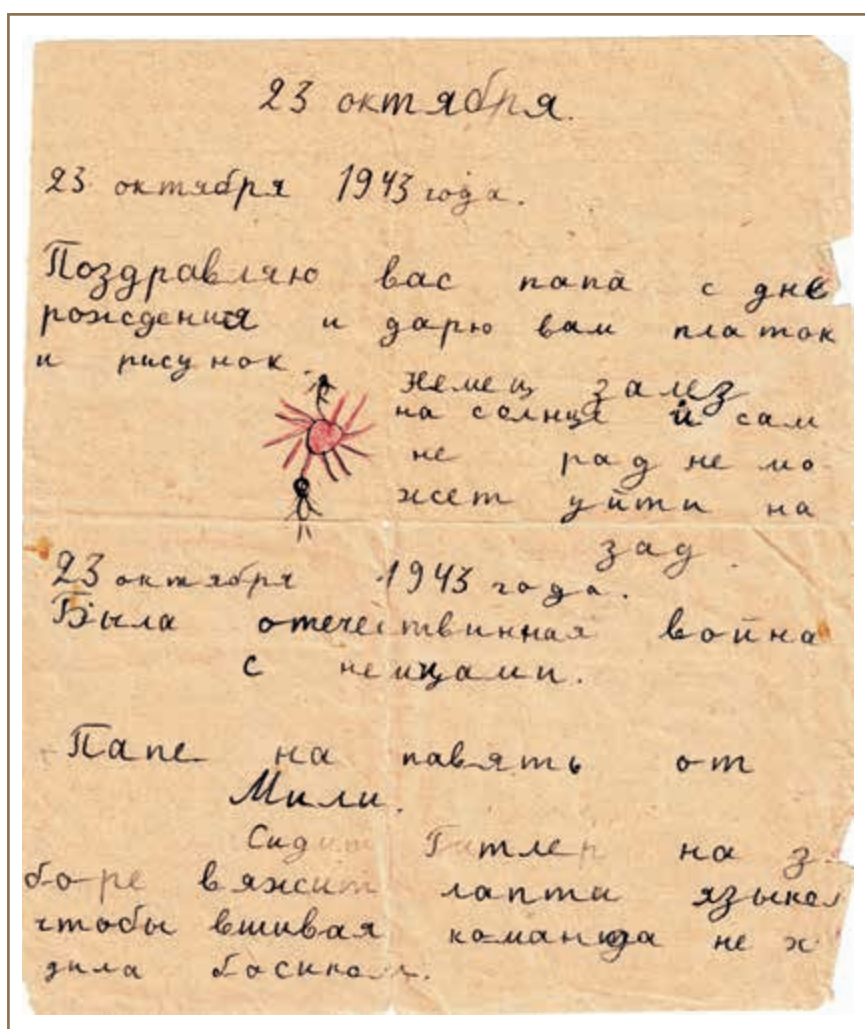 23 октября.
23 октября 1943 года.
Поздравляю вас папа с дне
рождения и дарю вам платок
и рисунок.
немец залез
на солнце и сам
не рад не мо
жет уйти на
зад
23 октября 1943 года.
Была отечествинная война
с немцами.
Папе на павять от
Мили.
Сидит Гитлер на з
боре вяжит лапти языком
чтобы вшивая команда не х
дила босиком.